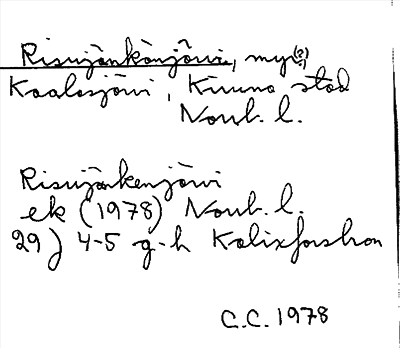 Risujänkänjärvi, myr(?)
Kaalasjärvi, Kiruna stad
Norrb. l.
Risujänkenjärvi
ek (1978) Norrb. l.
29J 4-5 g-h Kalixforsbron
C.C. 1978